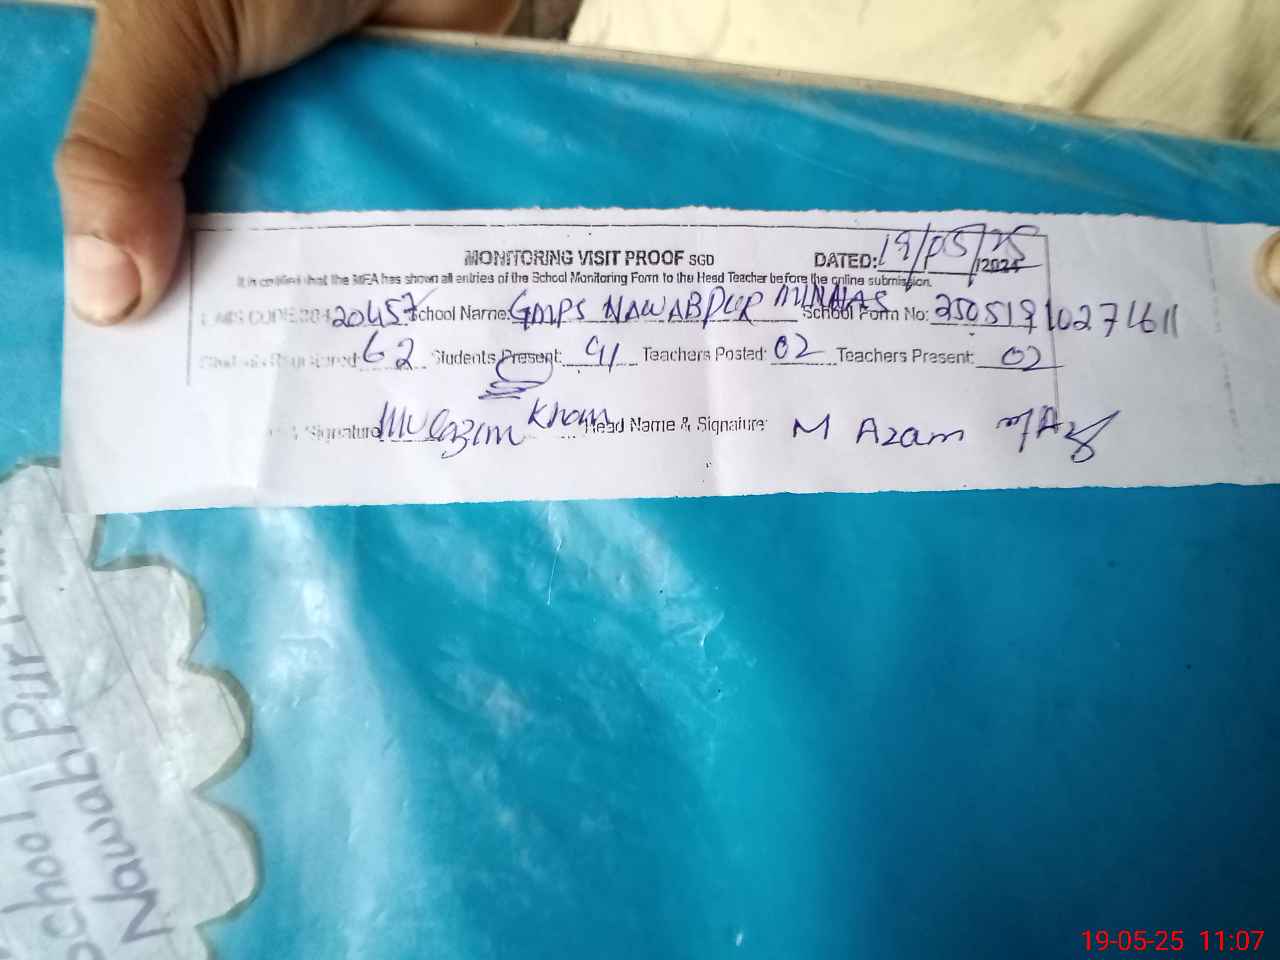 MONITORING VISIT PROOF SGD DATED: 19/05/25 /2024
It is certified that the MEA has shown all entries of the School Monitoring Form to the Head Teacher before the online submission.
20457 School Name: GMPS NAWABPUR MINHAS School Form No: 25051910271611
Students Registered: 62 Students Present: 41 Teachers Posted: 02 Teachers Present: 02
& Signature Mulazim Khan Head Name & Signature: M Azam
School
Nawab Pur
Nawab
19-05-25 11:07